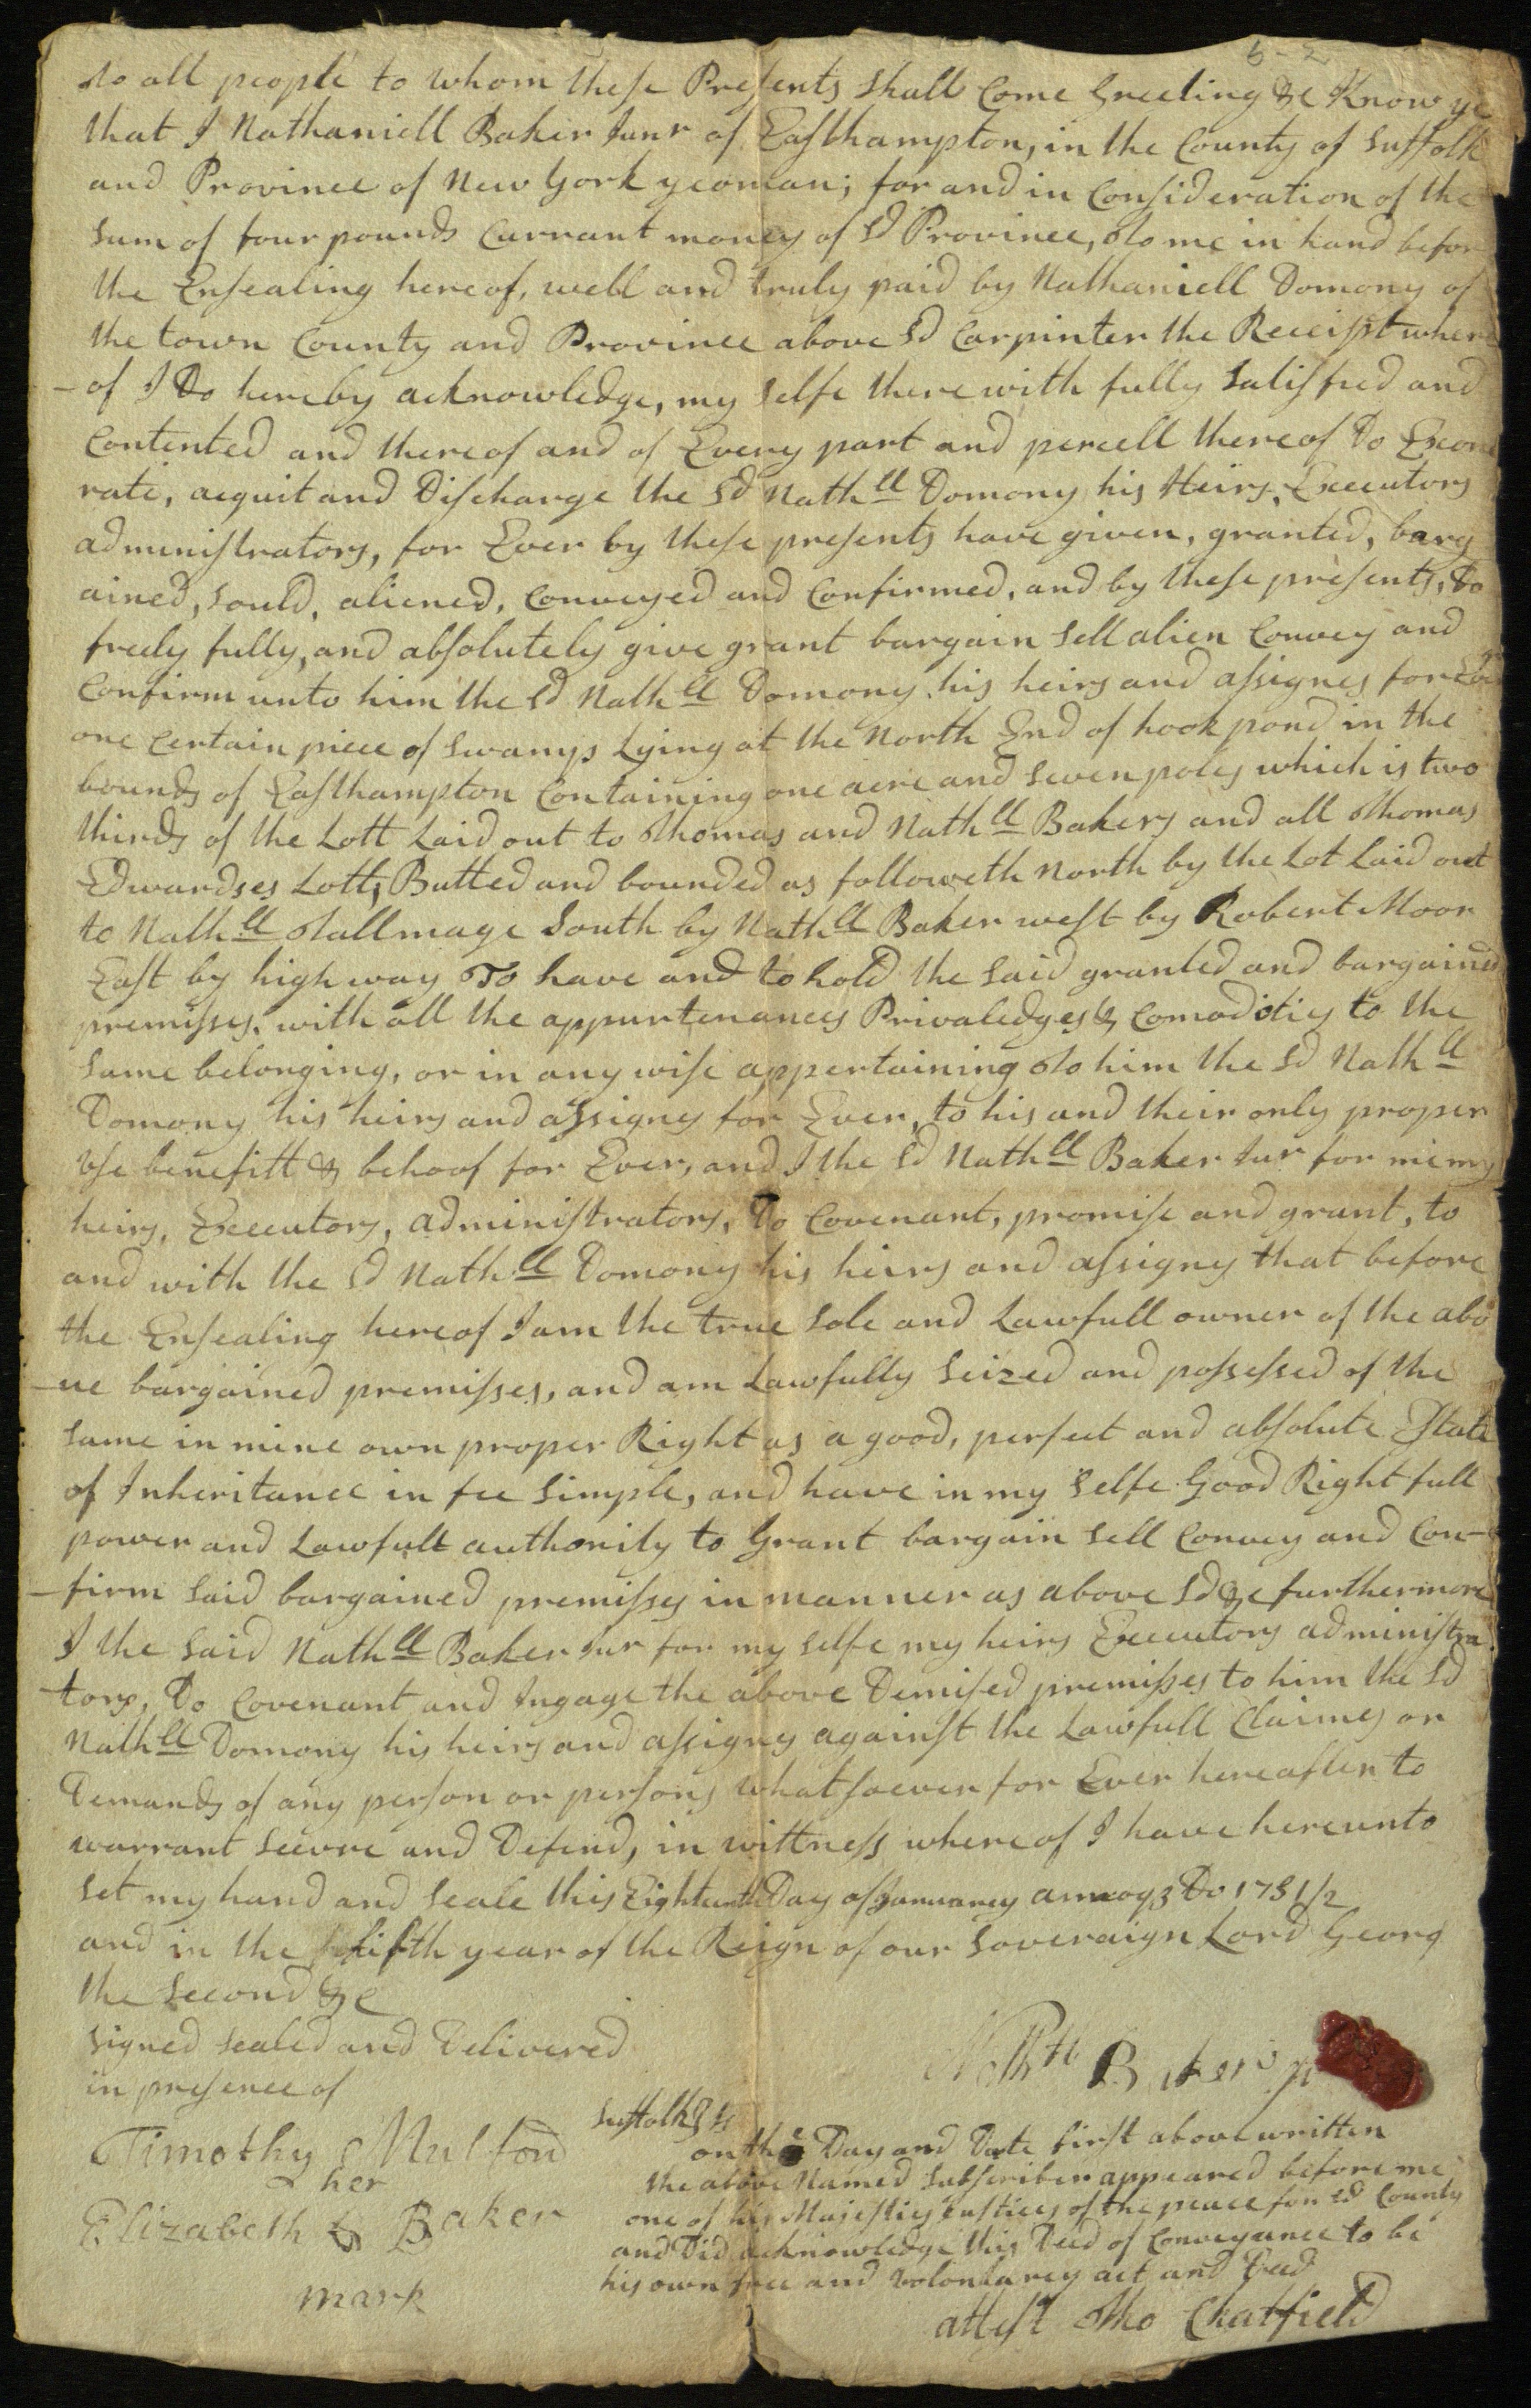 6-2
To all people to whom these Presents shall Come Greeting &c Know ye
that I Nathaniell Baker Junr of Easthampton, in the County of Suffolk
and Province of New York yeoman; for and in Consideration of the
sum of four pounds Currant money of Sd Province, To me in hand befor
the Ensealing hereof, well and truly paid by Nathaniell Domony of
the town County and Province above Sd Carpinter the Receipt where
-of I Do hereby acknowledge, my selfe there with fully Satisfied and
Contented and thereof and of Every part and percell thereof Do Exone
rate, acquit and Discharge the Sd Nathll Domony his Heirs, Executors
administrators, for Ever by these presents have given, granted, barg
ained, sould, aliened, Conveyed and Confirmed, and by these presents, Do
freely fully, and absolutely give grant bargain sell alien Convey and
Confirm unto him the Sd Nathll Domony his heirs and assignes for Ever
one certain piece of swamp Lying at the North End of hook pond in the
bounds of Easthampton Containing one acre and seven poles which is two
thirds of the Lott Laid out to Thomas and Nathll Bakers and all Thomas
Edwardses Lott, Butted and bounded as followeth North by the Lot Laid out
to Nathll Tallmage South by Nathll Baker west by Robert Moor
East by high way To have and to hold the said granted and bargained
premisses, with all the appurtenances Privaledges & Comodities to the
same belonging, or in any wise appertaining To him the Sd Nathll
Domony his heirs and assigns for Ever, to his and their only proper
use benefitt & behoof for Ever, and I the Sd Nathll Baker Jur for me my
heirs, Executors, administrators, Do Covenant, promise and grant, to
and with the Sd Nathll Domony his heirs and assigns that before
the Ensealing hereof I am the true sole and Lawfull owner of the abo
-ve bargained premisses, and am Lawfully Seized and possessed of the
same in mine own proper Right as a good, perfect and absolute Estate
of Inheritance in fee simple, and have in my selfe Good Right full
power and Lawfull authority to Grant bargain sell Convey and Con-
-firm said bargained premisses in manner as above Sd &c furthermore
I the said Nathll Baker Jur for my selfe my heirs Executors administra
-tors, Do Covenant and Ingage the above Demised premisses to him the Sd
Nathll Domony his heirs and assigns against the Lawfull Claimes or
Demands of any person or persons whatsoever for Ever hereafter to
warrant secure and Defend, in wittness whereof I have hereunto
set my hand and seale this Eighteenth Day of Januarey annoqz Do 1731/2
and in the fifth year of the Reign of our Soveraign Lord Georg
the Second &c
signed sealed and Delivered
in presence of
Nathll Baker Jr
Timothy Mulford
her
Elizabeth Baker
mark
Suffolk Ss
on the Day and Date first above written
the above Named Subscriber appeared before me
one of his Majesties Justices of the peace for Sd County
and Did acknowledge this Deed of Conveyance to be
his own free and volontarey act and Deed
attest Tho Chatfield